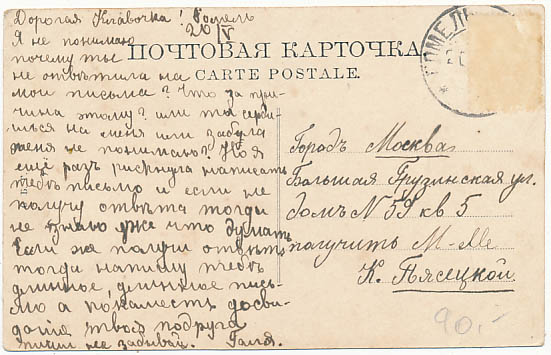 Дорогая Клавочка! Гомель
20/V
Я не понимаю
почему ты
не ответила на
мои письма? Что за при-
чина этому? или ты серди-
шься на меня или забыла
меня не понимаю? Но я
ещё разъ рискнула написать
тебѣ письмо и если не
получу ответа тогди
не знаю уже что думать
Если же получу ответъ
тогди напишу тебѣ
длинное, длинное пись-
мо а покаместъ досви-
дания твоя подруга
пиши не забывай. Галя.
ПОЧТОВАЯ КАРТОЧКА
CARTE POSTALE.
ГОМЕЛЬ
Городъ Москва
Большая Грузинская ул.
домъ N 39 кв 5
получить М-lle
К. Пясецкой.
90.-